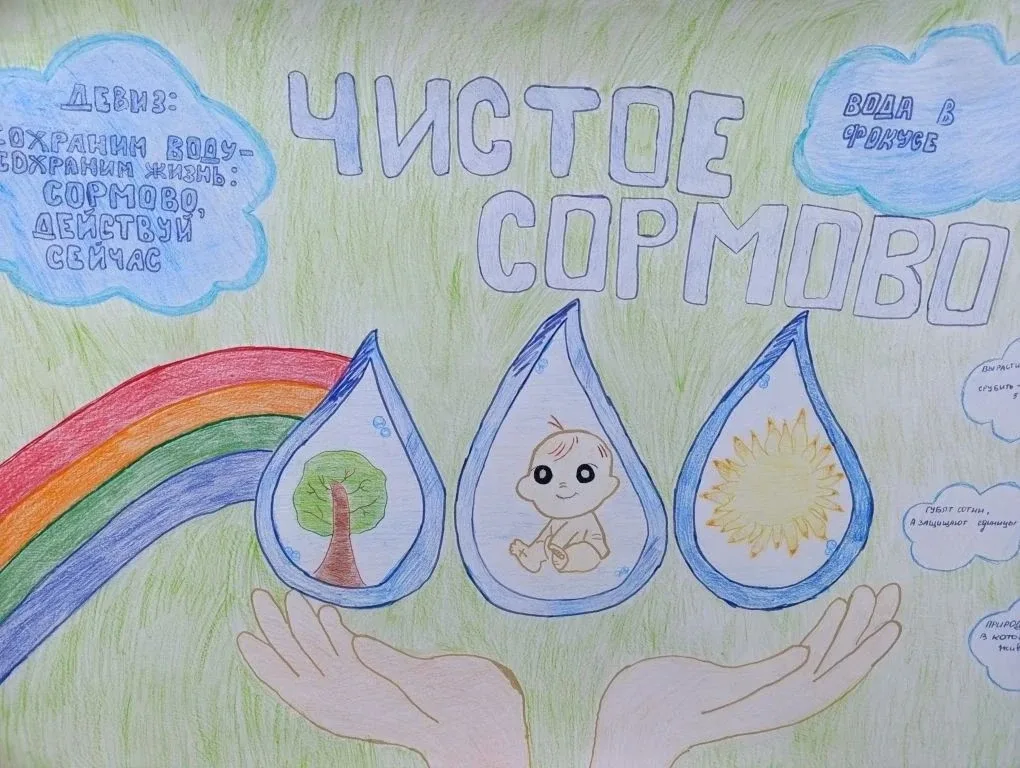 ДЕВИЗ:
СОХРАНИМ ВОДУ-
СОХРАНИМ ЖИЗНЬ:
СОРМОВО,
ДЕЙСТВУЙ
СЕЙЧАС
ЧИСТОЕ
СОРМОВО
ВОДА В
ФОКУСЕ
СРУБИТЬ -
ГУБЯТ СОТНИ,
А ЗАЩИЩАЮТ ЕДИНИЦЫ
В